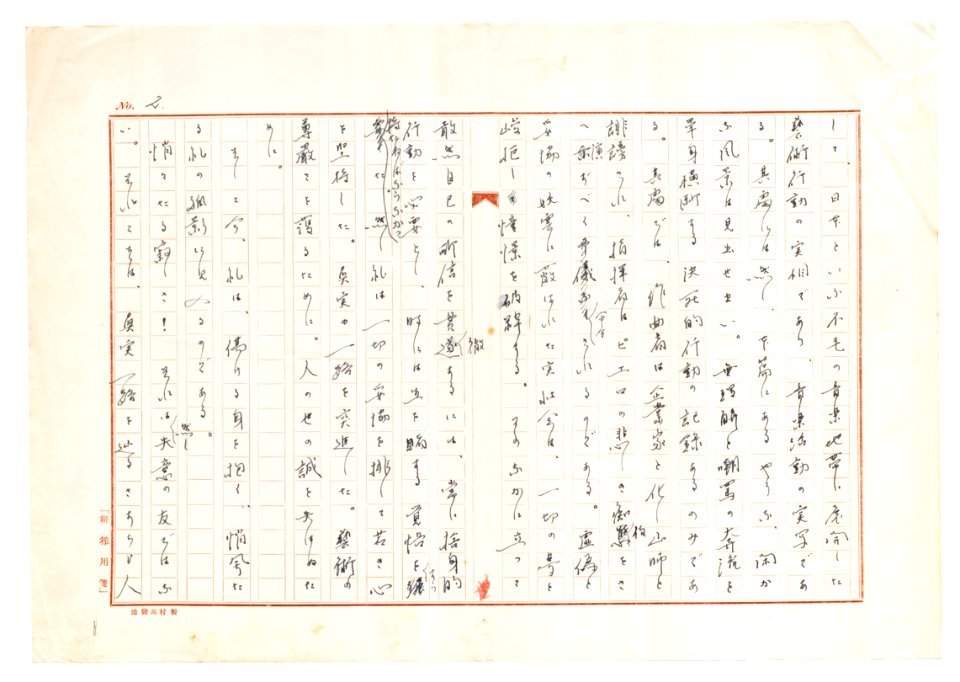 No. 2.
して、日本といふ不毛の音楽地帯に展開した
藝術行動の実相であり、音楽活動の実写であ
る。其処には然し、下篇にあるやうな、閑か
な風景は見出せまい。無理解と嘲罵の奔流を
単身横断する決死的行動の記録あるのみであ
る。其処では、作曲者は企業家と化し山師と
誹謗され、指揮者はピエロの悲しき痴態をさ
へ演ずべく余儀なくされるのである。虚偽と
妥協の映雲に蔽はれた実社会は、一切の夢を
峻拒し憧憬を破砕する。そのなかに立つて
敢然自己の所信を貫徹するには、常に捨身的
行動を必要とし、時には生を賭する覚悟を
持たねばならなかつた。然し、私は一切の妥協を排して若き心
を堅持した。真実の一路を突進した。藝術の
尊厳さを護るために。人の世の誠を失はぬた
めに。
そして今、私は、傷ける身を抱く、悄然た
る私の孤影に見入るのである。
悄々たる寂しさ!それは然し失意の友ではな
い。それこそは、真実一路を辿るさすらひ人
池袋高村製